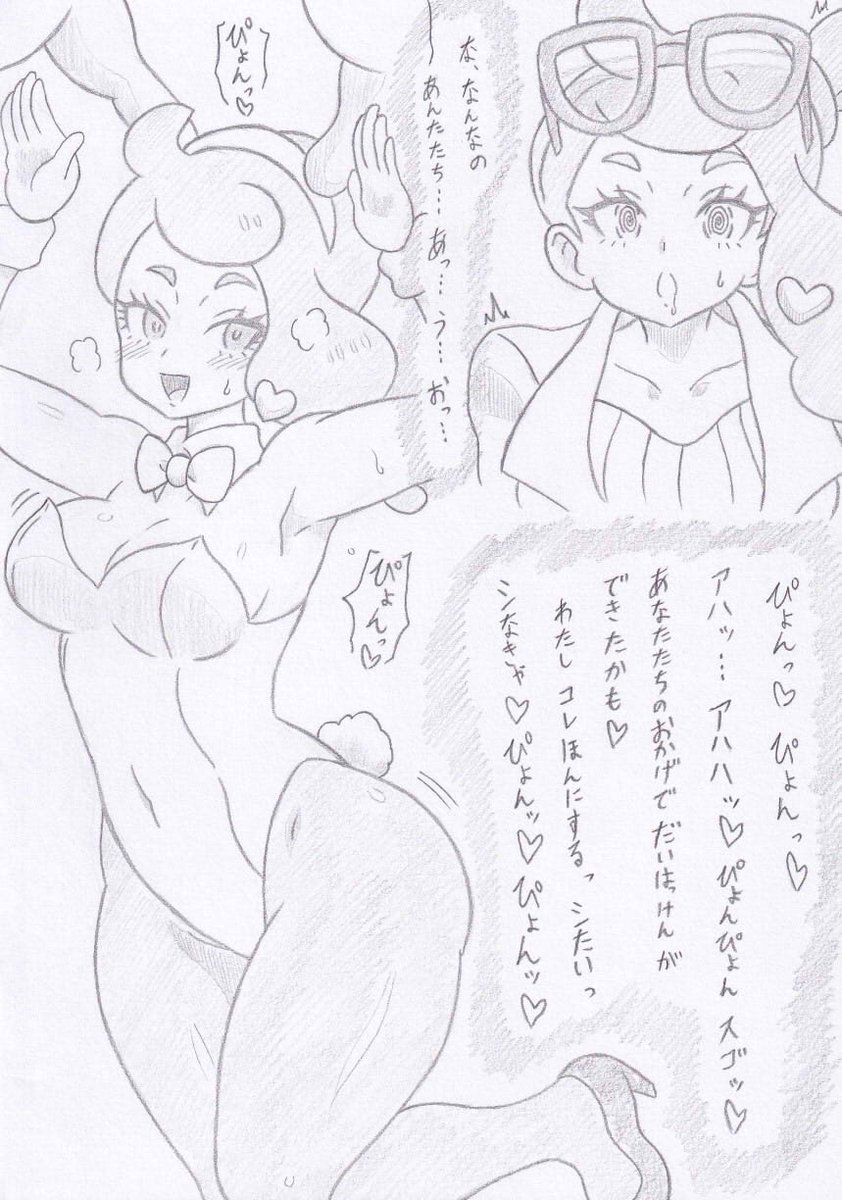 な、なんなの
あんたたち…あっ…う…おっ…
ぴょんっ♡
ぴょんっ♡
ぴょんっ♡ぴょんっ♡
アハッ…アハハッ♡ぴょんぴょんスゴッ♡
あなたたちのおかげでだいはっけんが
できたかも♡
わたしコレほんにするっシたいっ
シなきゃ♡ぴょんッ♡ぴょんッ♡